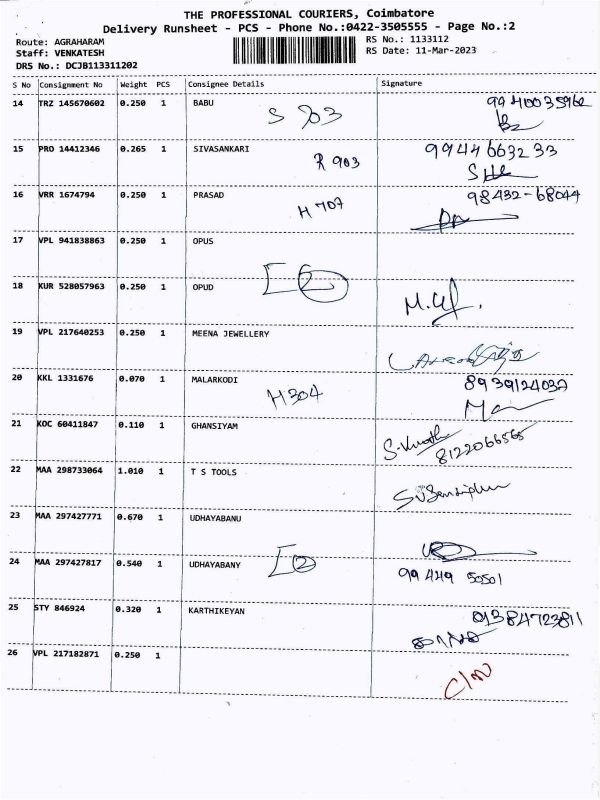 THE PROFESSIONAL COURIERS, Coimbatore
Delivery Runsheet - PCS - Phone No.:0422-3505555 - Page No.:2
Route: AGRAHARAM
RS No.: 1133112
Staff: VENKATESH
RS Date: 11-Mar-2023
DRS No.: DCJB113311202
S No Consignment No Weight PCS Consignee Details Signature
14 TRZ 145670602 0.250 1 BABU
S 703
15 PRO 14412346 0.265 1 SIVASANKARI 99446 63233
R 903
16 VRR 1674794 0.250 1 PRASAD 98432-68044
H 707
17 VPL 941838863 0.250 1 OPUS
18 KUR 528057963 0.250 1 OPUD
19 VPL 217640253 0.250 1 MEENA JEWELLERY
20 KKL 1331676 0.070 1 MALARKODI
H 304
21 KOC 60411847 0.110 1 GHANSIYAM
8122066565
22 MAA 298733064 1.010 1 T S TOOLS
23 MAA 297427771 0.670 1 UDHAYABANU
24 MAA 297427817 0.540 1 UDHAYABANY
99449 50501
25 STY 846924 0.320 1 KARTHIKEYAN
26 VPL 217182871 0.250 1